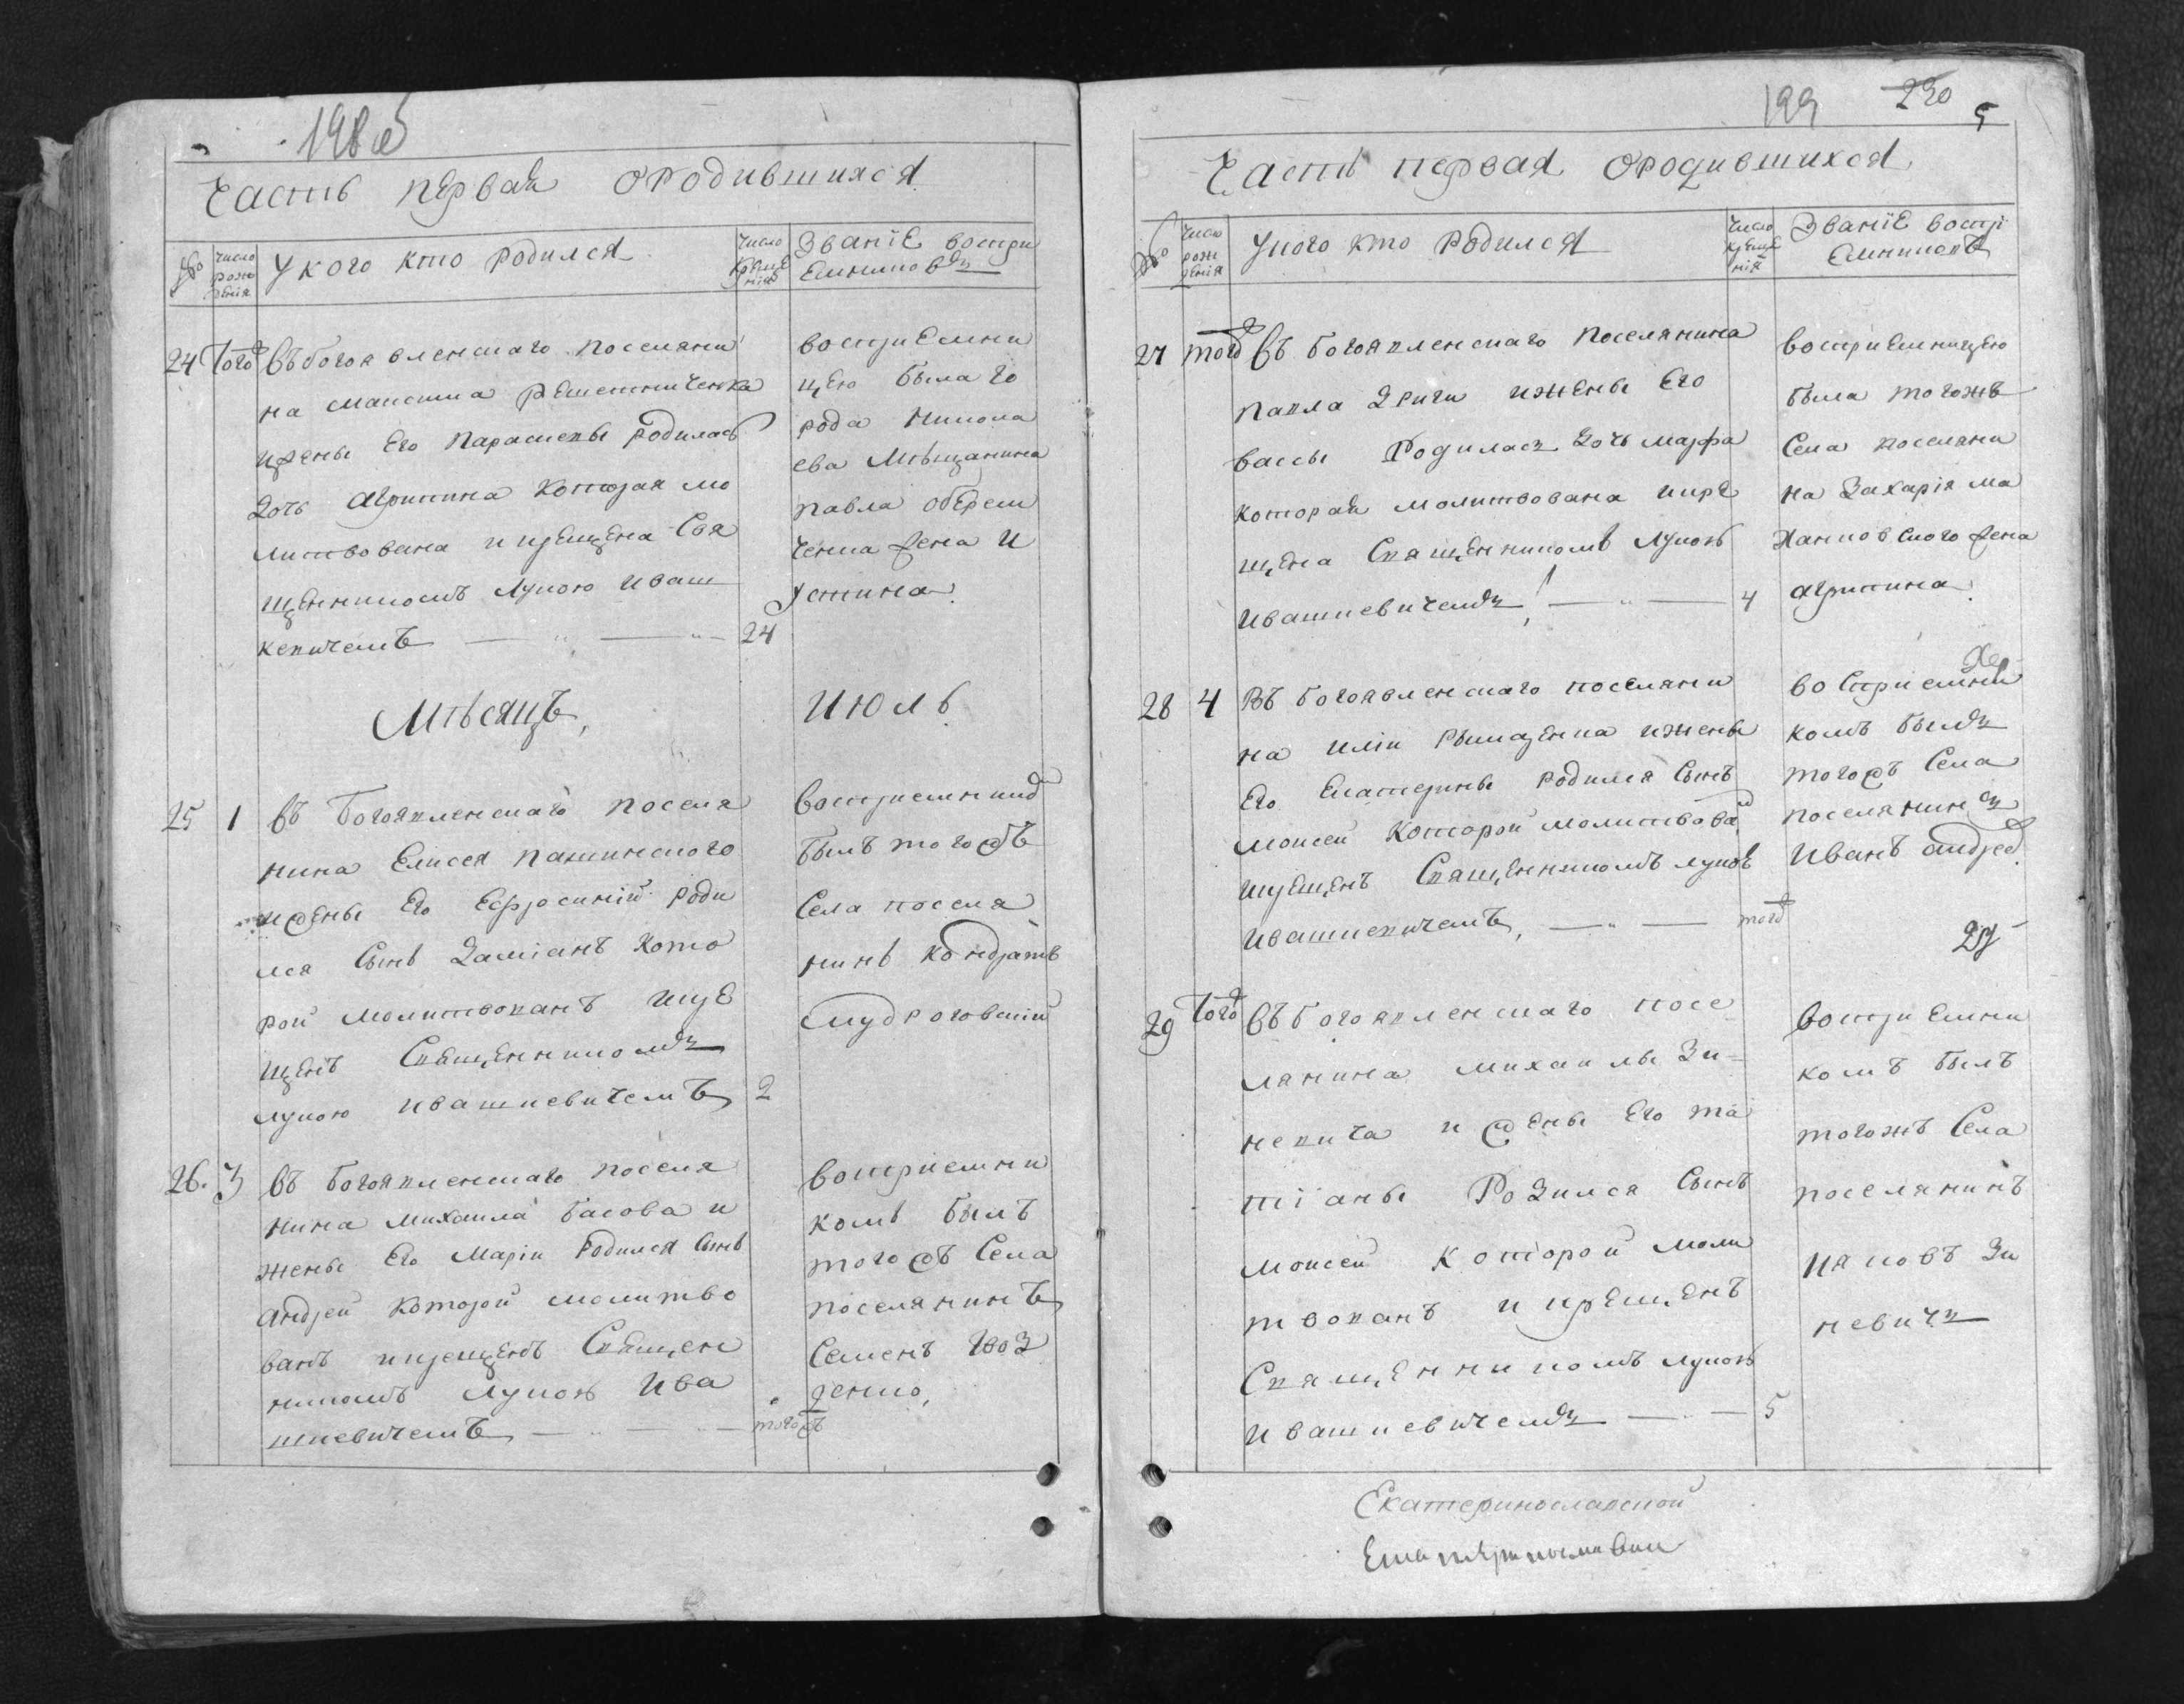 198 об
Часть первая ородившихся
№
Число рождения
У кого кто родился
Число крещения
Званіе востри
емниковъ
24 Тогож въ богоявленскаго поселяни
на максима Решетниченка
ижены Его Параскевы родилась
дочь агрипина Которая мо
литвована и крещена Свя
щенникомъ Лукою Иваш
кевичемъ 24
востриЕмни
цею была го
рода Никола
ева Мѣщанина
павла оберем
ченка жена И
устина
Мѣсяцъ, ИЮль
25 1 въ Богоявленскаго поселя
нина Елисея пашинского
ижены Его Ефросиніи роди
лся Сынъ Даміанъ Кото
рой молитвованъ икре
щенъ Священникомъ
лукою ивашкевичемъ 2
востриемникомъ
былъ тогожъ
Села поселя
нинъ кондратъ
мудроговскій
26. 3 въ богоявленскаго поселя
нина михаила басова и
жены Его Маріи Родился Сынъ
андрей Которой молитво
ванъ икрещенъ Священ
никомъ лукою Ива
шкевичемъ тогожъ
востриемни
комъ былъ
тогожъ Села
поселянинъ
Семенъ Гвоз
денко,
199 230 5
Часть первая ородившихся
№
Число рожденія
Укого кто Родился
Число крещенія
Званіе востри
емниковъ
27 тогож въ богоявленскаго Поселянина
павла Дриги ижены Его
вассы Родилась дочь марфа
которая молитвована икре
щена Священникомъ лукою
ивашкевичемъ 4
востриемницею
была тогожъ
Села поселяни
на Захарія ма
жена
агрипина
28 4 Въ богоявленскаго поселяни
на иліи Рымаренка ижены
Его Екатерины родился Сынъ
моисей Которой молитвова
икрещенъ Священникомъ лукою
ивашкевичемъ, тогож
востриемни
комъ былъ
тогожъ Села
поселянинъ
Иванъ андрев
29 Тогож въ богоявленскаго посе
лянина михаилы Зи=
невича и жены Его та
тіаны Родился Сынъ
моисей Которой моли
твованъ и крещенъ
Священникомъ лукою
ивашкевичемъ 5
востриемни
комъ былъ
тогожъ Села
поселянинъ
яковъ Зи
невичъ
Екатеринославской